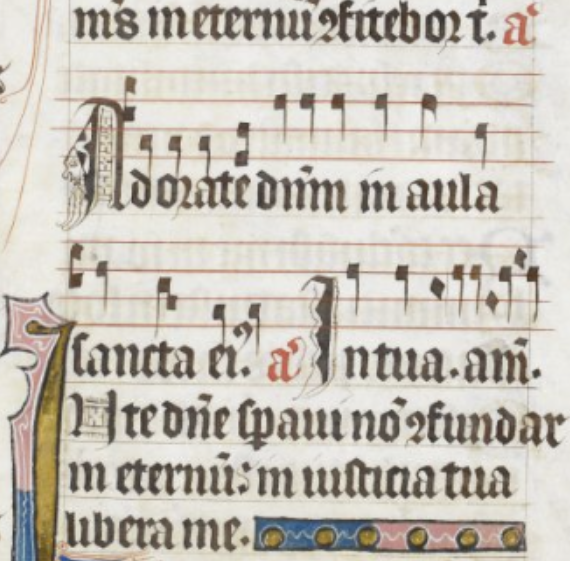 m̄s in eternū ꝯfitebor t̄. a͛
Adorate dn̄m in aula
sancta ei᷒. a͛ In tua. am̄.
IN te dn̄e sp̄aui nō ꝯfundar
in eternū: in iusticia tua
libera me.